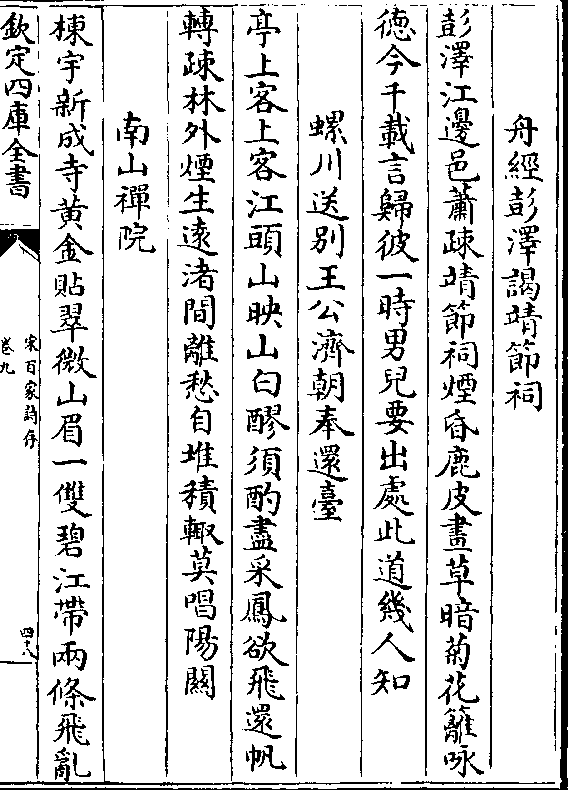 舟經彭澤謁靖節祠
彭澤江邊邑蕭疎靖節祠煙昏鹿皮畫草暗菊花籬咏
徳今千載言歸彼一時男兒要出處此道幾人知
螺川送别王公濟朝奉還臺
亭上客上客江頭山映山白醪須酌盡采鳳欲飛還帆
轉疎林外煙生遠渚間離愁自堆積輙莫唱陽闗
南山禪院
棟宇新成寺黄金貼翠微山眉一雙碧江帶兩條飛亂
欽定四庫全書
宋百家詩存
卷九
四六